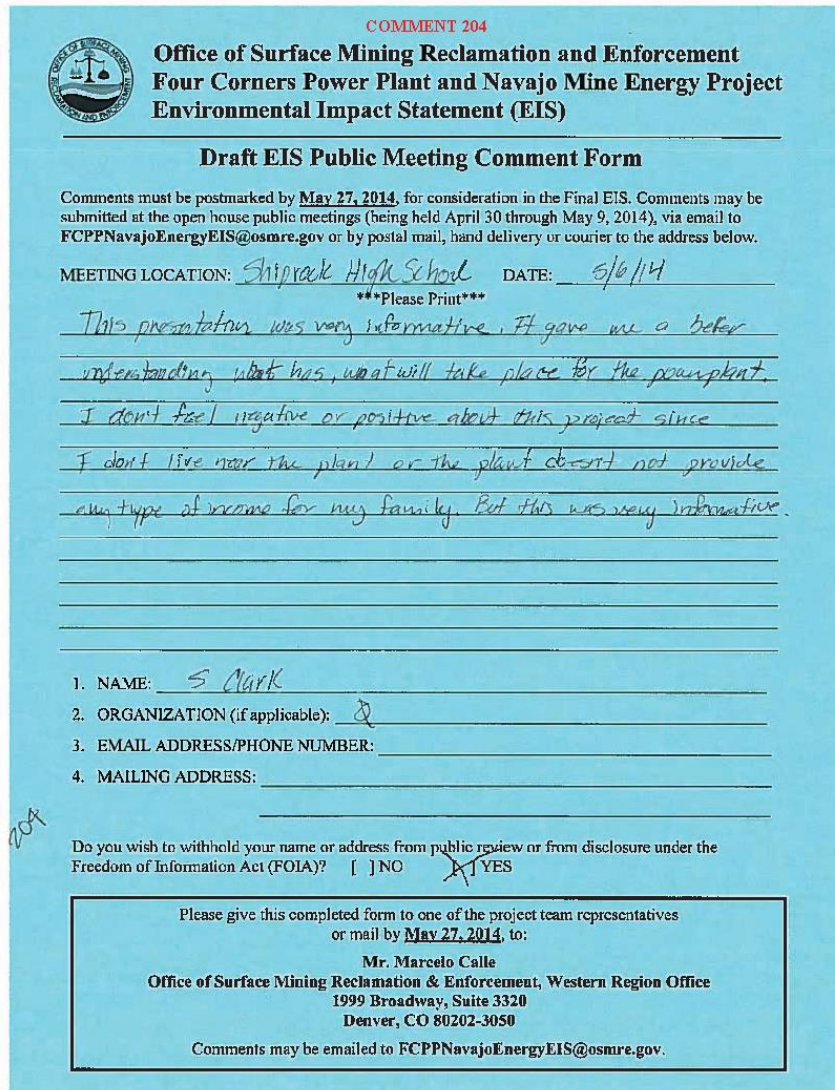 COMMENT 204
Office of Surface Mining Reclamation and Enforcement
Four Corners Power Plant and Navajo Mine Energy Project
Environmental Impact Statement (EIS)
Draft EIS Public Meeting Comment Form
Comments must be postmarked by May 27, 2014, for consideration in the Final EIS. Comments may be
submitted at the open house public meetings (being held April 30 through May 9, 2014), via email to
FCPPNavajoEnergyEIS@osmre.gov or by postal mail, hand delivery or courier to the address below.
MEETING LOCATION: Shiprock High School DATE: 5/6/14
***Please Print***
This presentation was very informative. It gave me a beter
understanding what has, what will take place for the powerplant.
I don't feel negative or positive about this project since
I don't live near the plant or the plant doesn't not provide
any type of income for my family. But this was very informative.
1. NAME: S Clark
2. ORGANIZATION (if applicable):
3. EMAIL ADDRESS/PHONE NUMBER:
4. MAILING ADDRESS:
204
Do you wish to withhold your name or address from public review or from disclosure under the
Freedom of Information Act (FOIA)? [ ] NO [X] YES
Please give this completed form to one of the project team representatives
or mail by May 27, 2014, to:
Mr. Marcelo Calle
Office of Surface Mining Reclamation & Enforcement, Western Region Office
1999 Broadway, Suite 3320
Denver, CO 80202-3050
Comments may be emailed to FCPPNavajoEnergyEIS@osmre.gov.